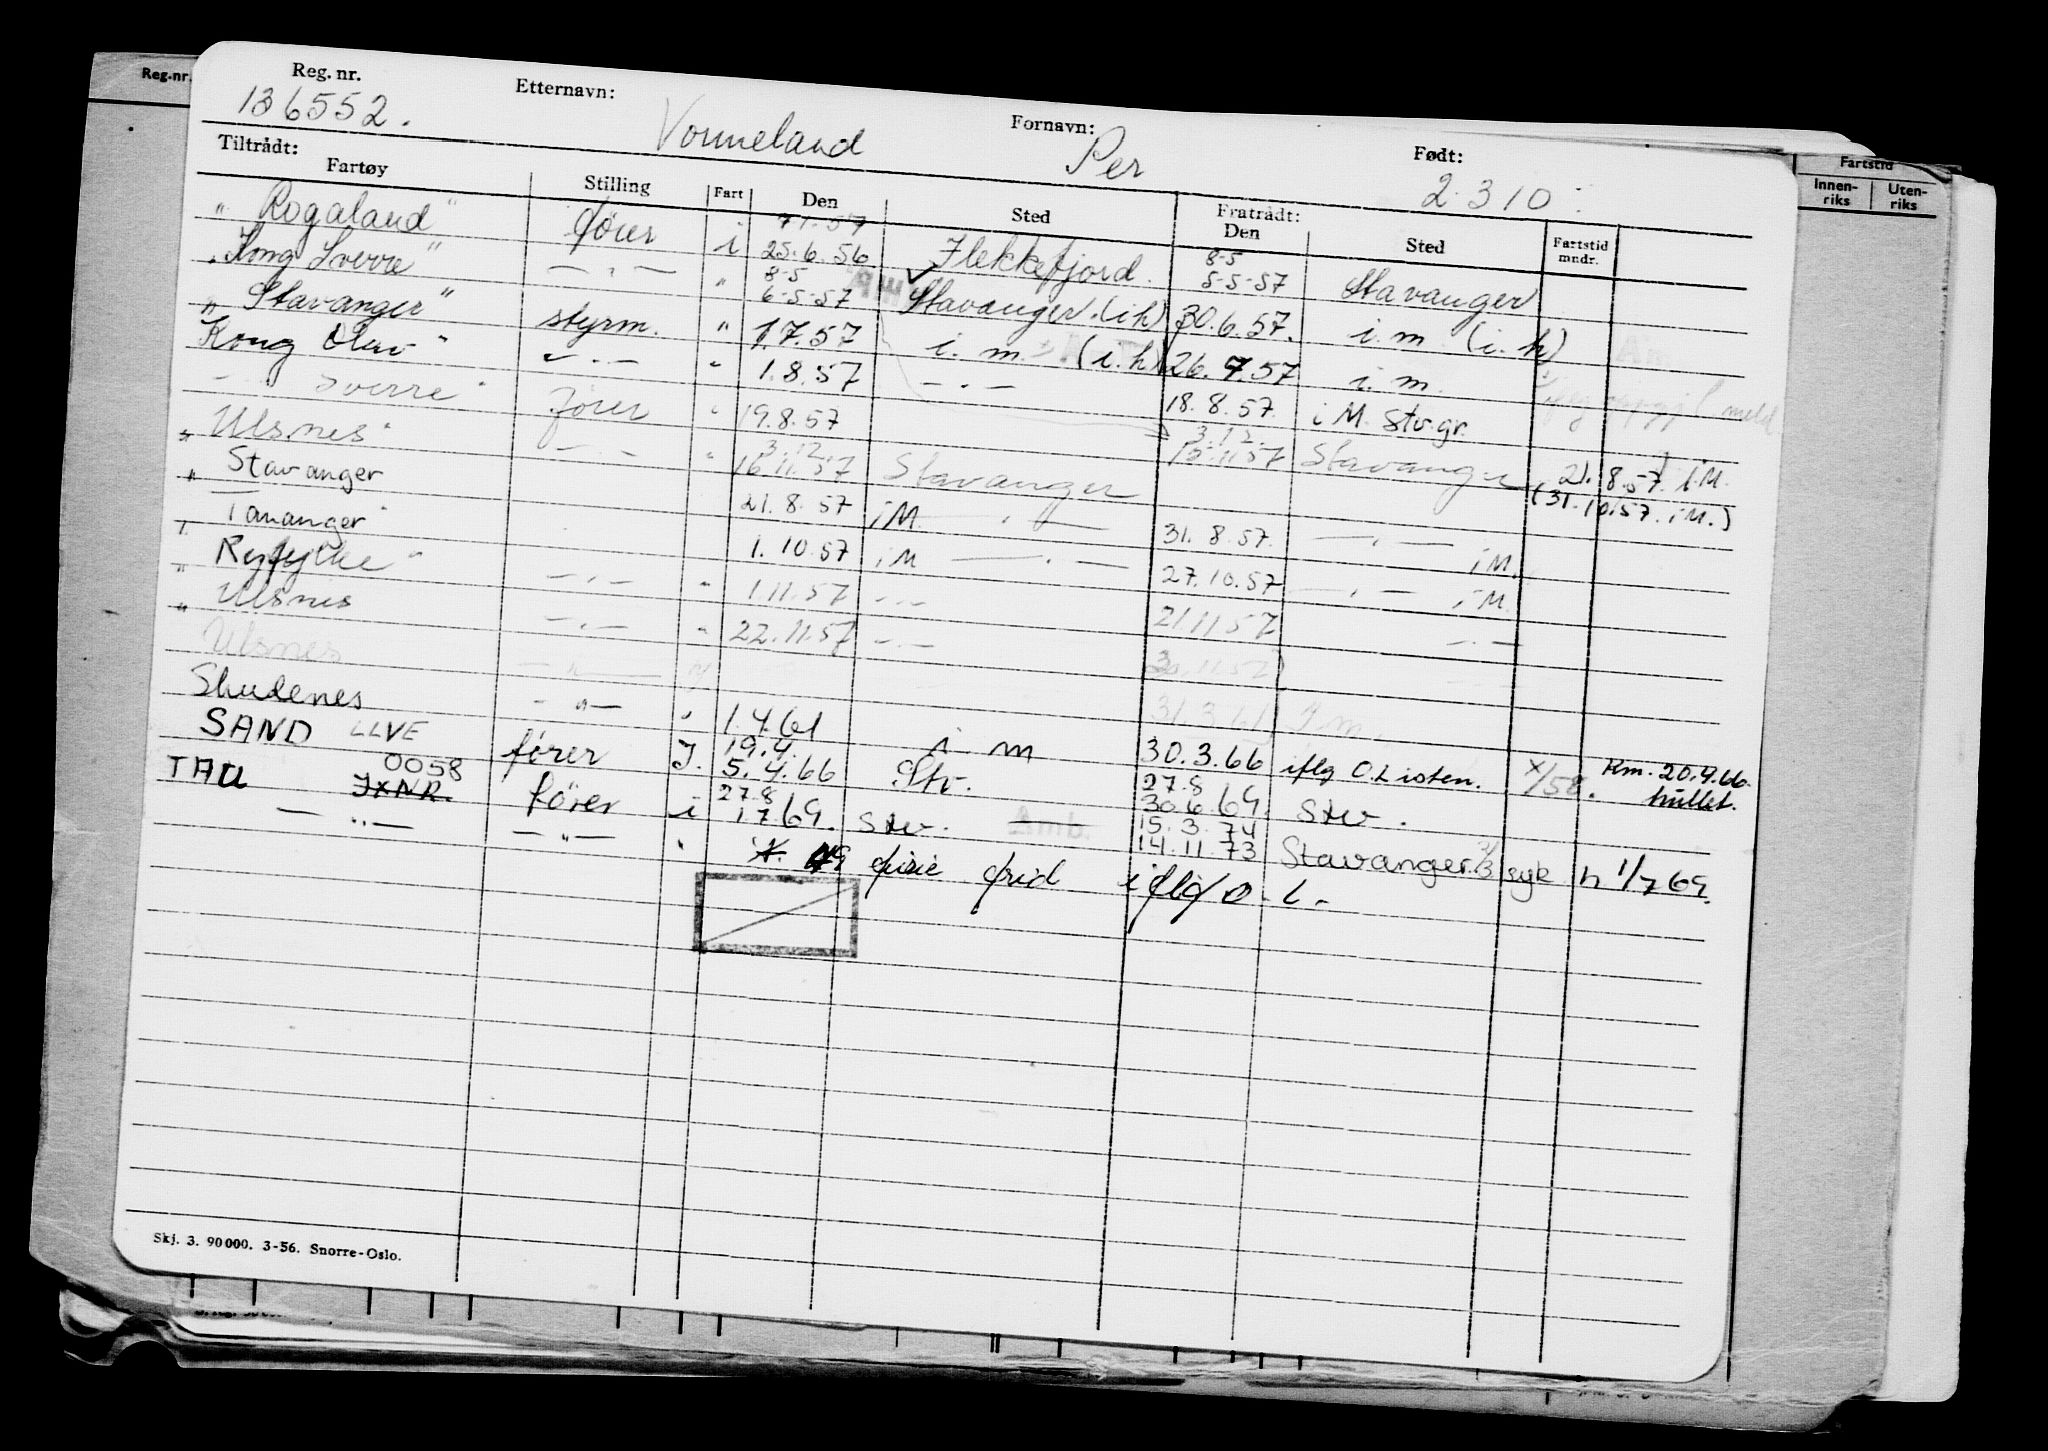 Reg.nr.
Reg. nr. Etternavn: Fornavn: Født:
136552. Vormeland Per 2.3 10.
Tiltrådt: Fratrådt: Fartstid
Fartøy Stilling Fart Den Sted Den Sted Fartstid mndr. Innen-riks Uten-riks
7 1.57
"Rogaland" fører i 25.6.56 Flekkefjord. 8-5 5-5-57 Stavanger
"Kong Sverre" — " — " 8-5 6-5-57 Stavanger.(i.h) 30.6.57. i.m (i.h)
"Stavanger" styrm. " 1.7.57 i.m. (i.h) 26.7.57 i.m.
Kong Olav" — " — " 1.8.57 — " — 18.8.57. i M. Stv.gr.
— " — Sverre" fører " 19.8.57 3.12.
"Ulsnes" — " — " 3.12. 16.11.57 Stavanger 15.11.57 Stavanger 21.8.57. i.M.
"Stavanger 21.8.57 i M. — " — 31.8.57. — " — i M. (31.10.57. i M.)
"Tananger" 1.10.57 i M — " — 27.10.57 — " — i M.
"Ryfylke" — " — " 1.11.57 — " — 21.11.57 — " —
"Ulsnes — " — " 22.11.57 — " — 30.11.57
Ulsnes — " — 31.3.61 i m.
Skudenes — " — " 1.4.61 i m 30.3.66 iflg O.Listen. x/58. Rm. 20.4.66 hullet.
SAND LLVE fører I. 19.4. 5.4.66 Stv. 27.8 30.6.69. Stv.
TAU 0058 JXNR. fører i 27.8 1.7.69. Stv. Amb. 15.3.74 14.11.73 Stavanger syk h 1/7 69.
— " — — " — " ferie frid iflg O.L.
Skj. 3. 90 000. 3-56. Snorre-Oslo.